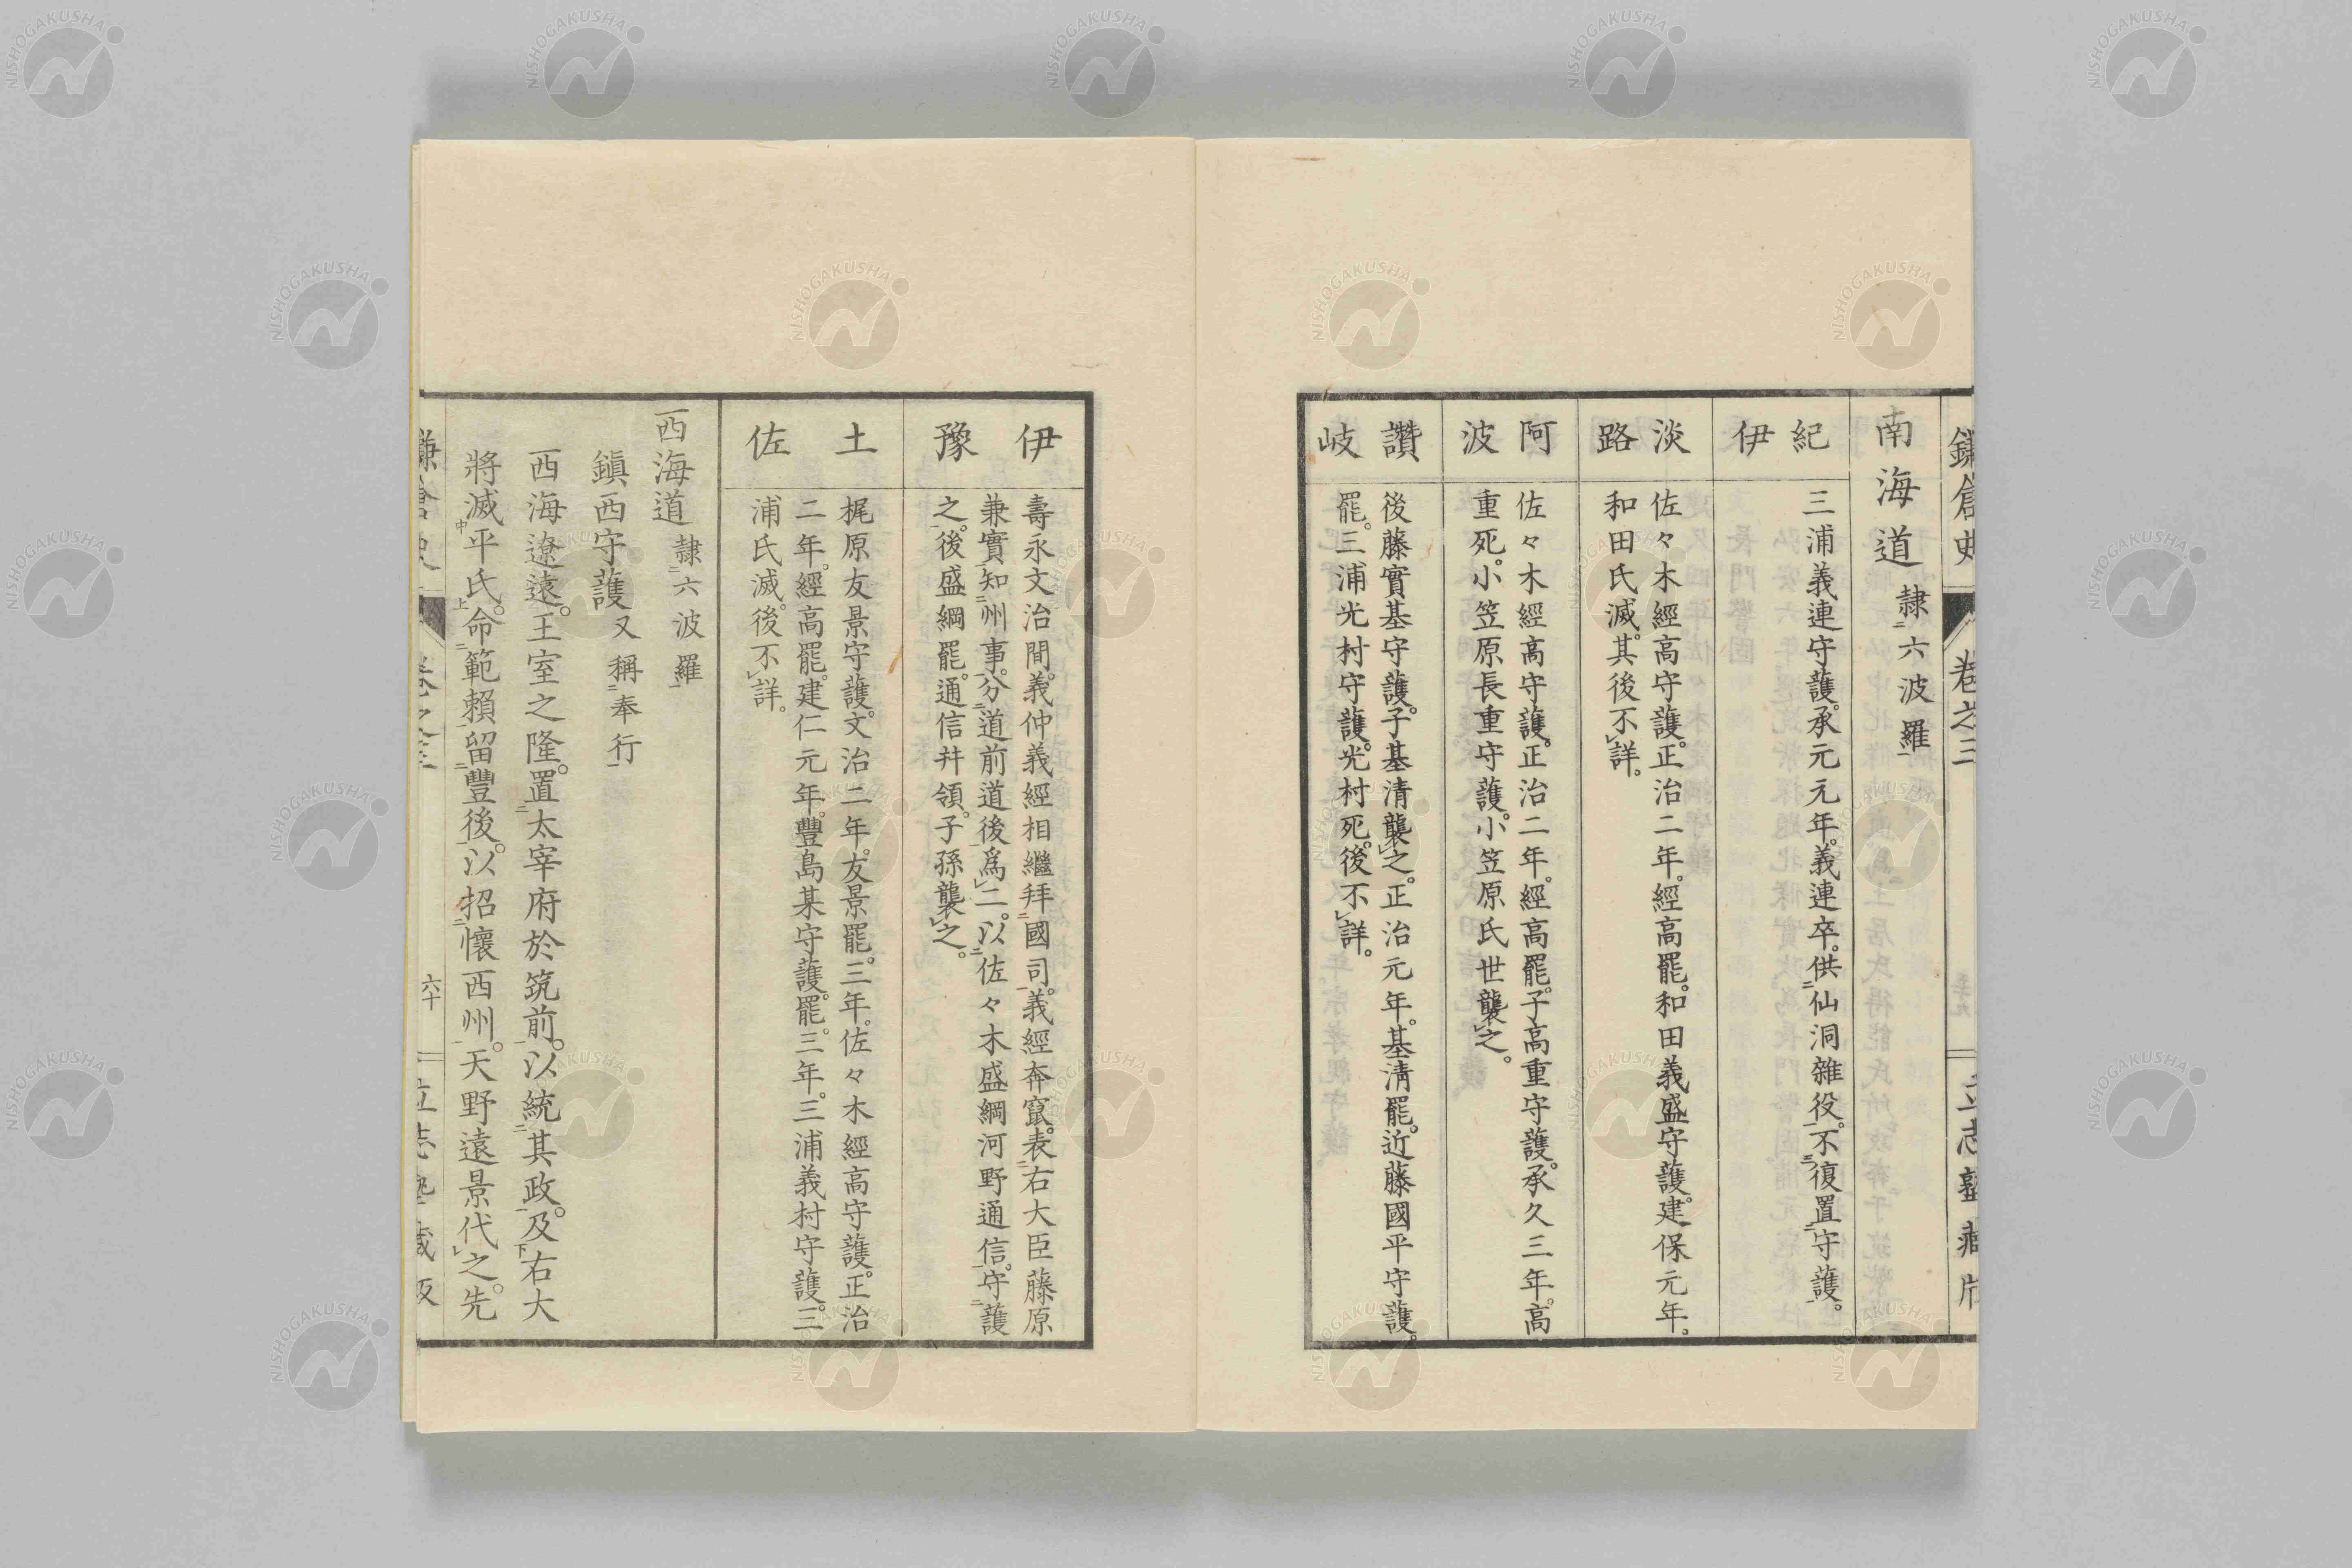 鎌倉史 卷之三 立志塾藏版
南海道 隷二六波羅一
紀伊
三浦義連守護。承元元年。義連卒。供二仙洞雜役一。不三復置二守護一。
淡路
佐々木經高守護。正治二年。經高罷。和田義盛守護。建保元年。
和田氏滅。其後不レ詳。
阿波
佐々木經高守護。正治二年。經高罷。子高重守護。承久三年。高
重死。小笠原長重守護。小笠原氏世襲レ之。
讚岐
後藤實基守護。子基清襲レ之。正治元年。基清罷。近藤國平守護。
罷。三浦光村守護。光村死。後不レ詳。
伊豫
壽永文治間。義仲義經相繼拜二國司一。義經奔竄。表二右大臣藤原
兼實一知二州事一。分二道前道後一爲レ二。以二佐々木盛綱河野通信一。守二護
之一。後盛綱罷。通信幷領。子孫襲レ之。
土佐
梶原友景守護。文治二年。友景罷。三年。佐々木經高守護。正治
二年。經高罷。建仁元年。豐島某守護。罷。三年。三浦義村守護。三
浦氏滅。後不レ詳。
西海道 隷二六波羅一
鎭西守護 又稱二奉行一
西海遼遠。王室之隆。置二太宰府於筑前一。以統二其政一。及下右大
將滅中平氏上。命二範賴一留二豐後一。以招二懷西州一。天野遠景代レ之。先
鎌倉史 卷之三 六十 立志塾藏版
NISHOGAKUSHA